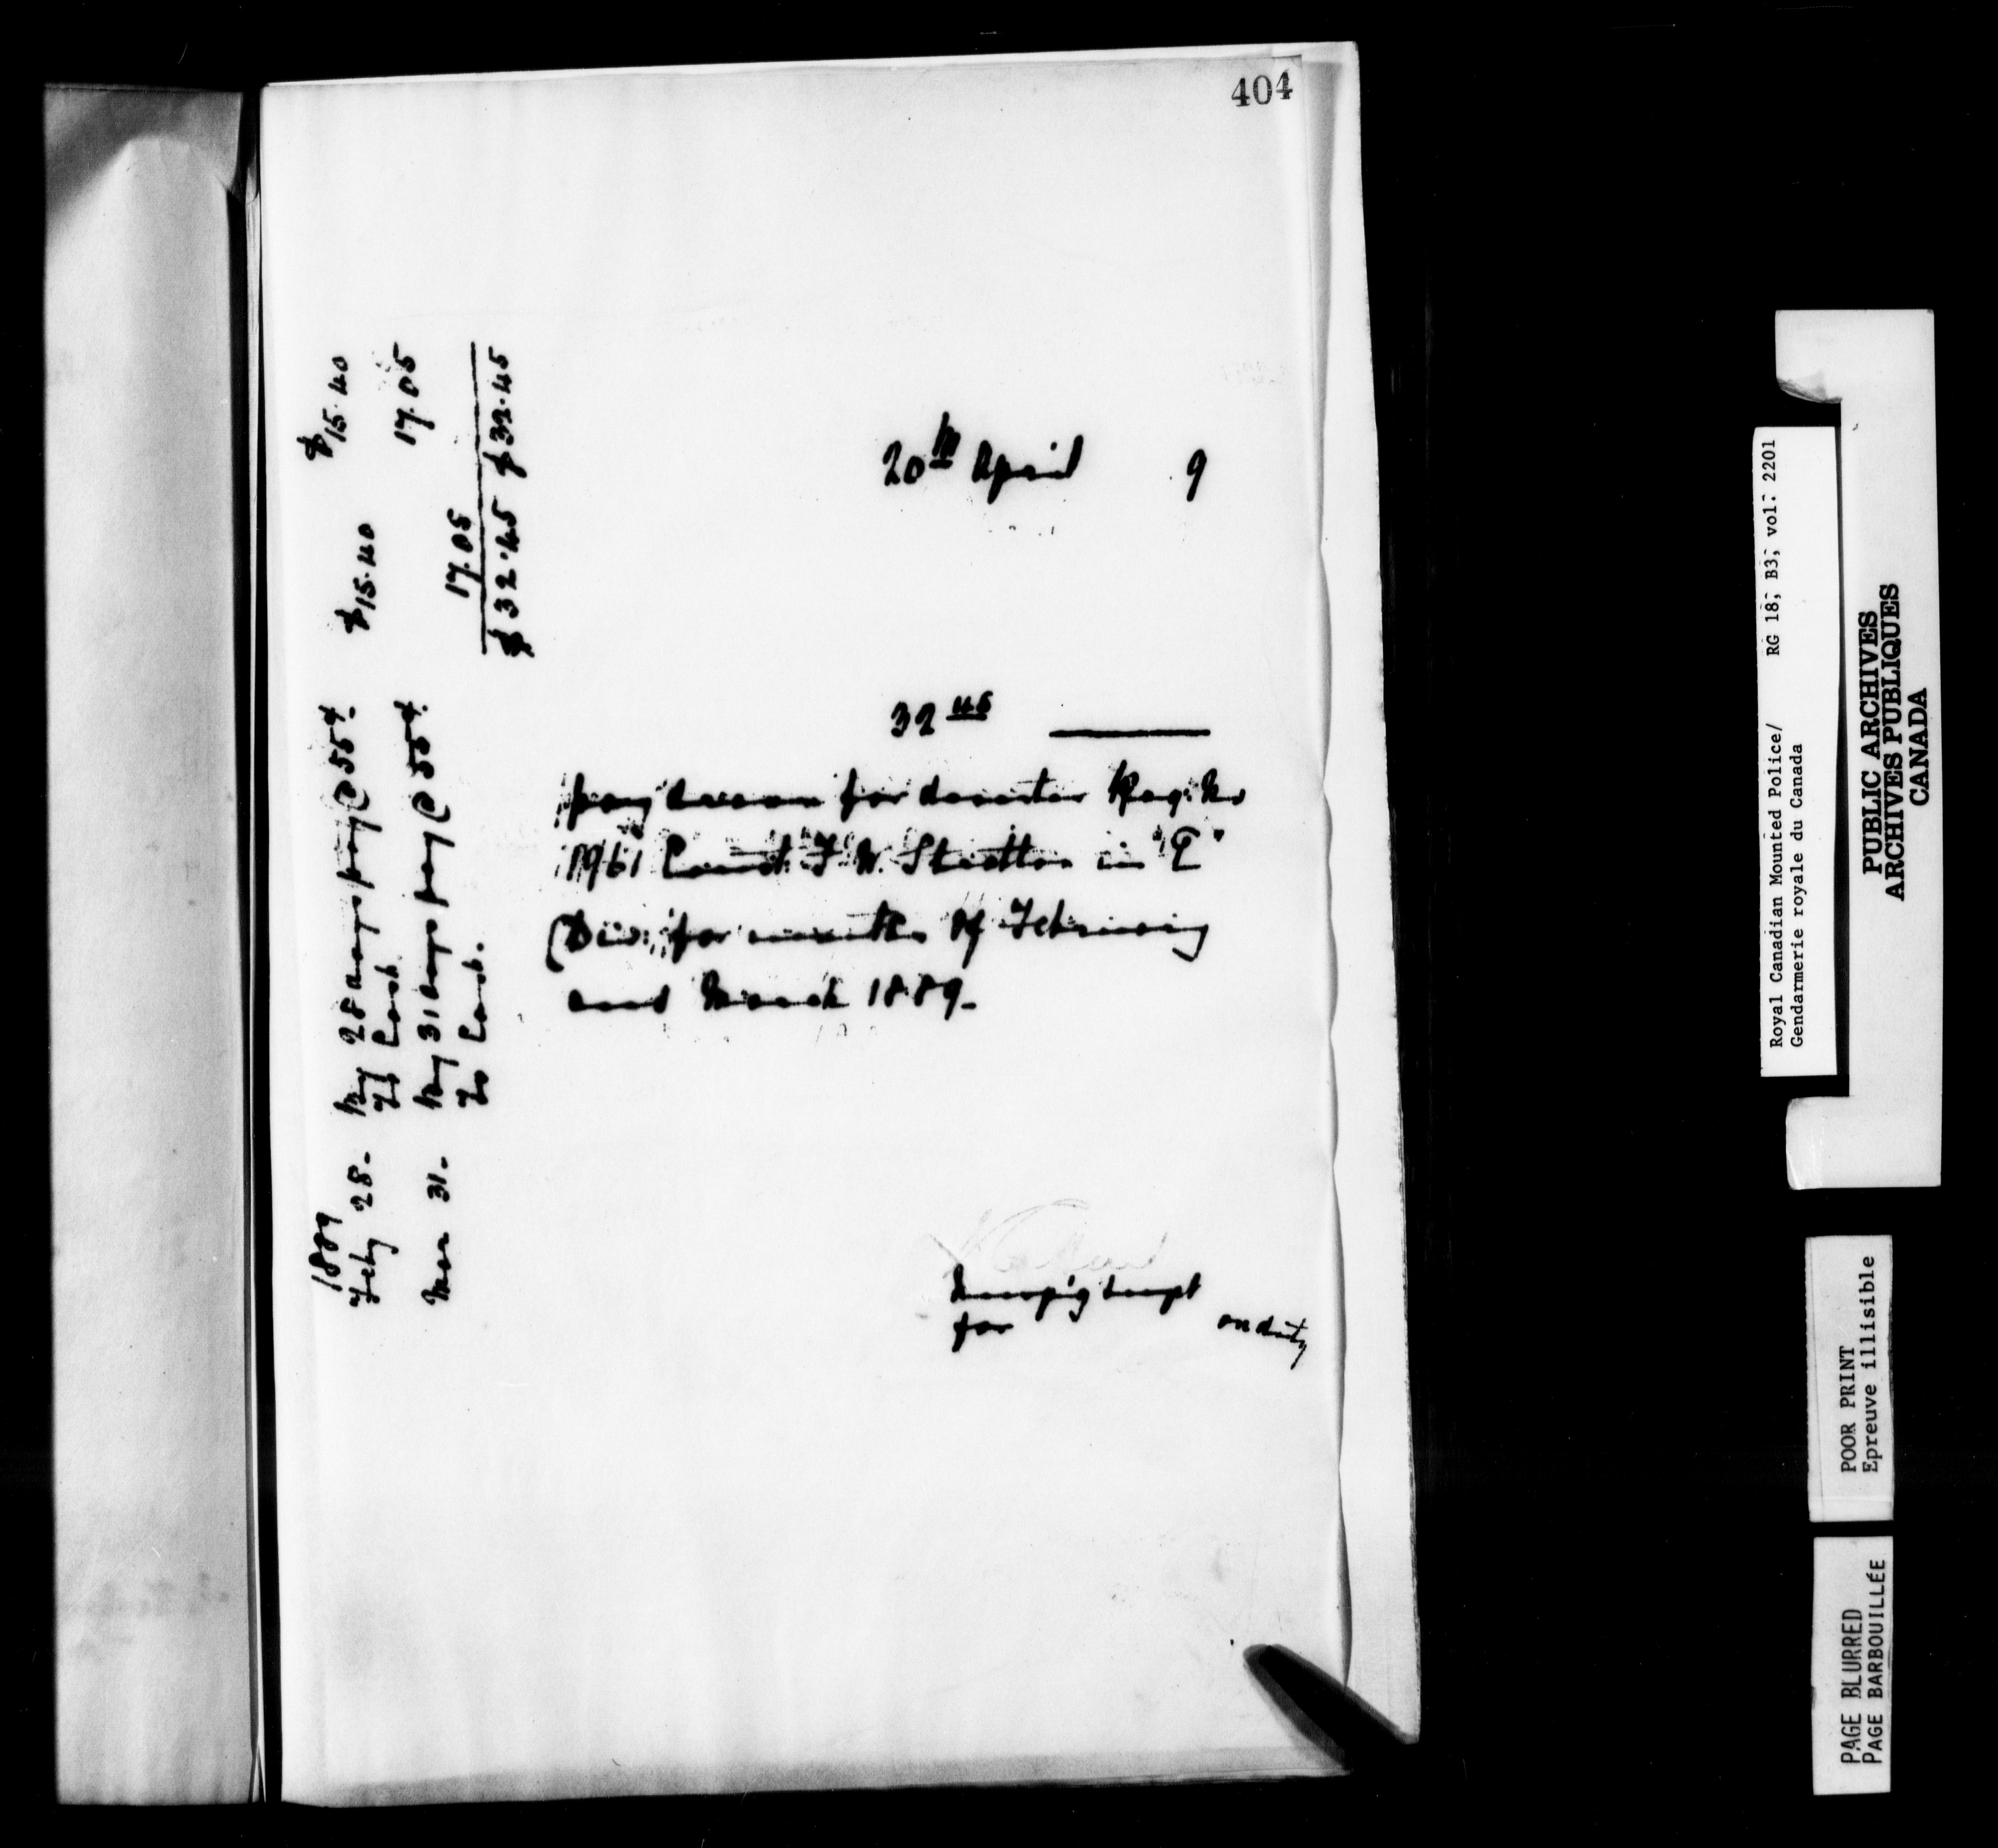 404
1889
Feby 28. By 28 days pay @ 55¢. $15.40
To Cash. $15.40
Mar 31. By 31 days pay @ 55¢. 17.05
To Cash. 17.05
$32.45 $32.45
20th April 9
32 45
pay drawn for deserter Reg. No
1961 Const. F. W. Stretton in "E"
Div. for months of February
and March 1889.
Supt
for on duty
Royal Canadian Mounted Police/ RG 18, B3, vol. 2201
Gendarmerie royale du Canada
PUBLIC ARCHIVES
ARCHIVES PUBLIQUES
CANADA
POOR PRINT
Epreuve illisible
PAGE BLURRED
PAGE BARBOUILLÉE